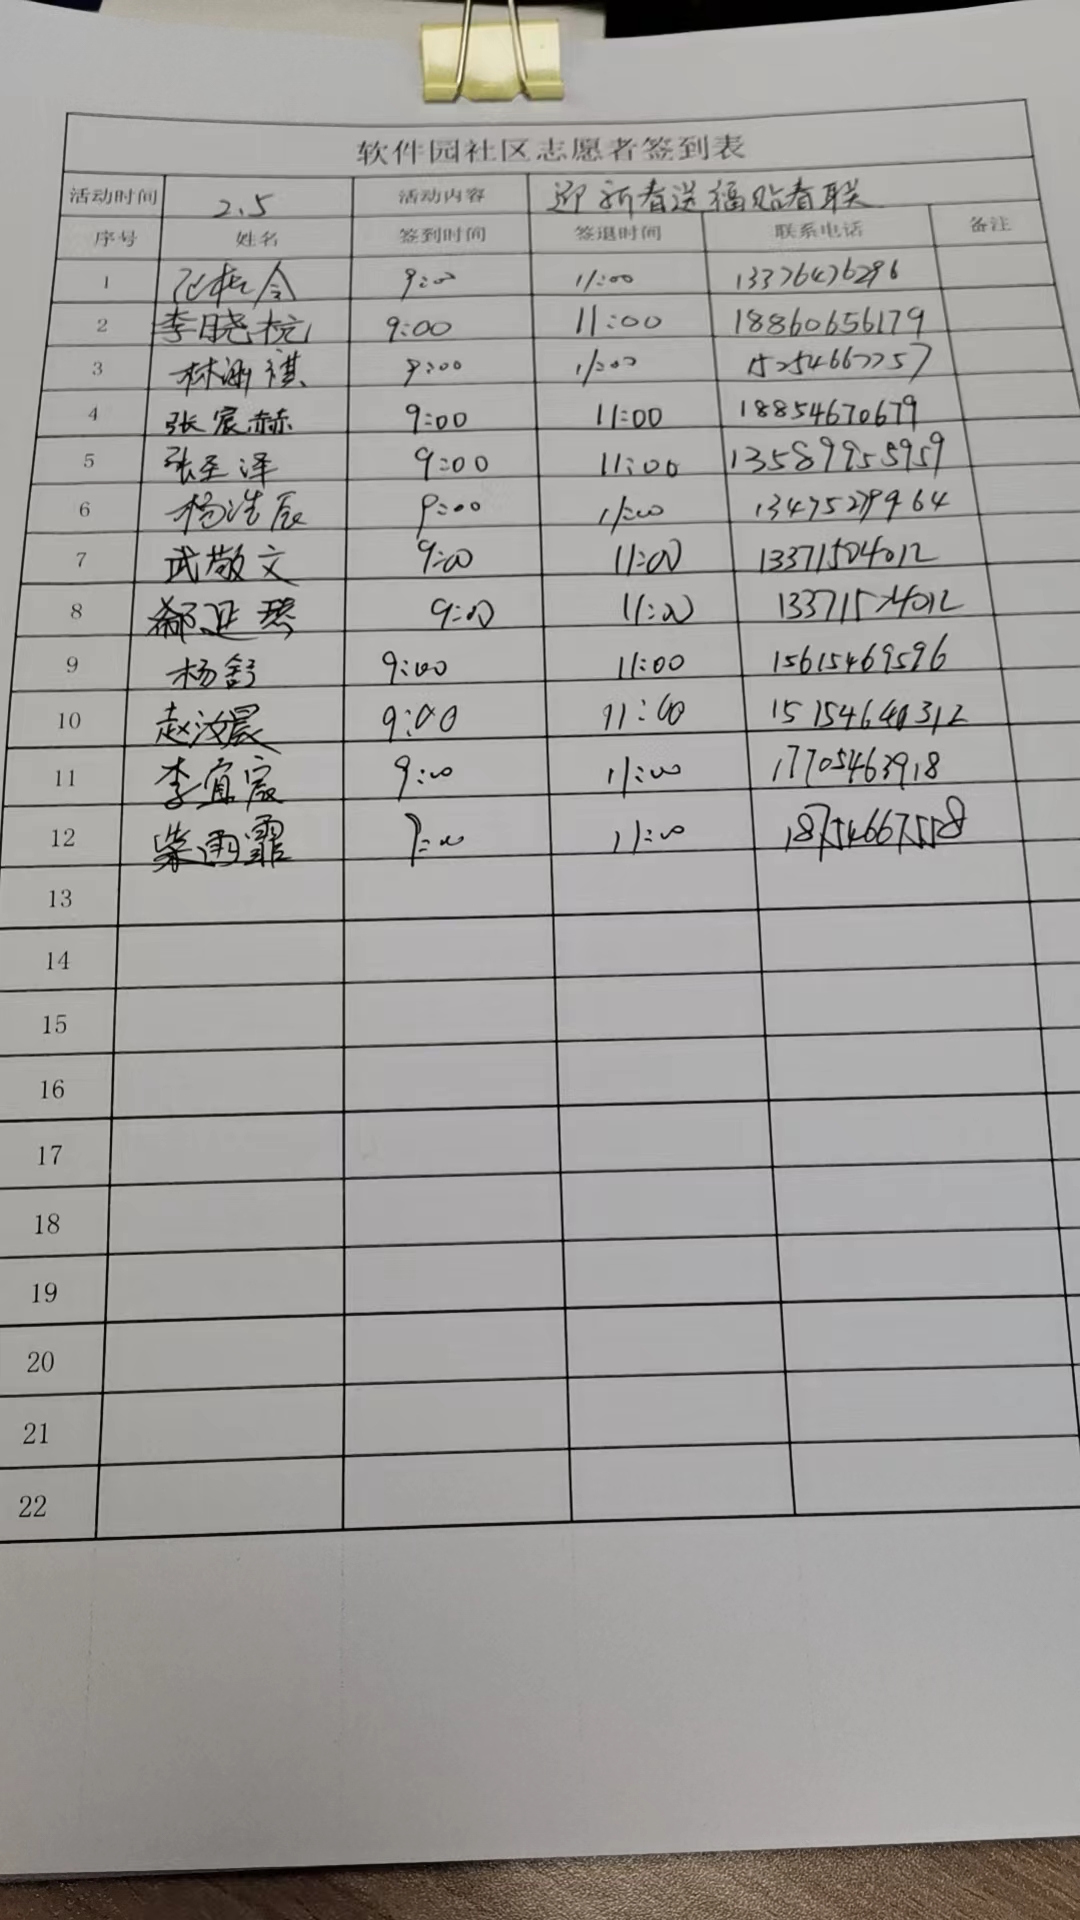 软件园社区志愿者签到表
活动时间 2.5 活动内容 迎新春送福贴春联
序号 姓名 签到时间 签退时间 联系电话 备注
1 9:00 11:00 13376476296
2 李晓杭 9:00 11:00 18860656179
3 林 祺 9:00 11:00 15254667757
4 张宸赫 9:00 11:00 18854670679
5 张圣泽 9:00 11:00 13589955959
6 杨浩辰 9:00 11:00 13475279964
7 武敬文 9:00 11:00 13371504012
8 郗延琴 9:00 11:00 13371524012
9 杨舒 9:00 11:00 15615469596
10 赵汝晨 9:00 11:00 15154640312
11 李宜宸 9:00 11:00 17705463918
12 柴雨霏 9:00 11:00 18754667558
13
14
15
16
17
18
19
20
21
22